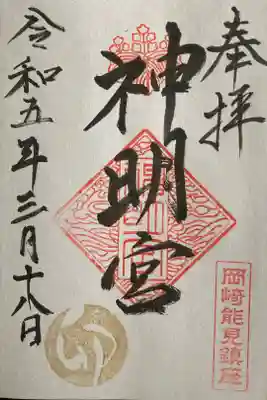 奉拝
岡崎能見鎮座
神明宮
令和五年三月十八日